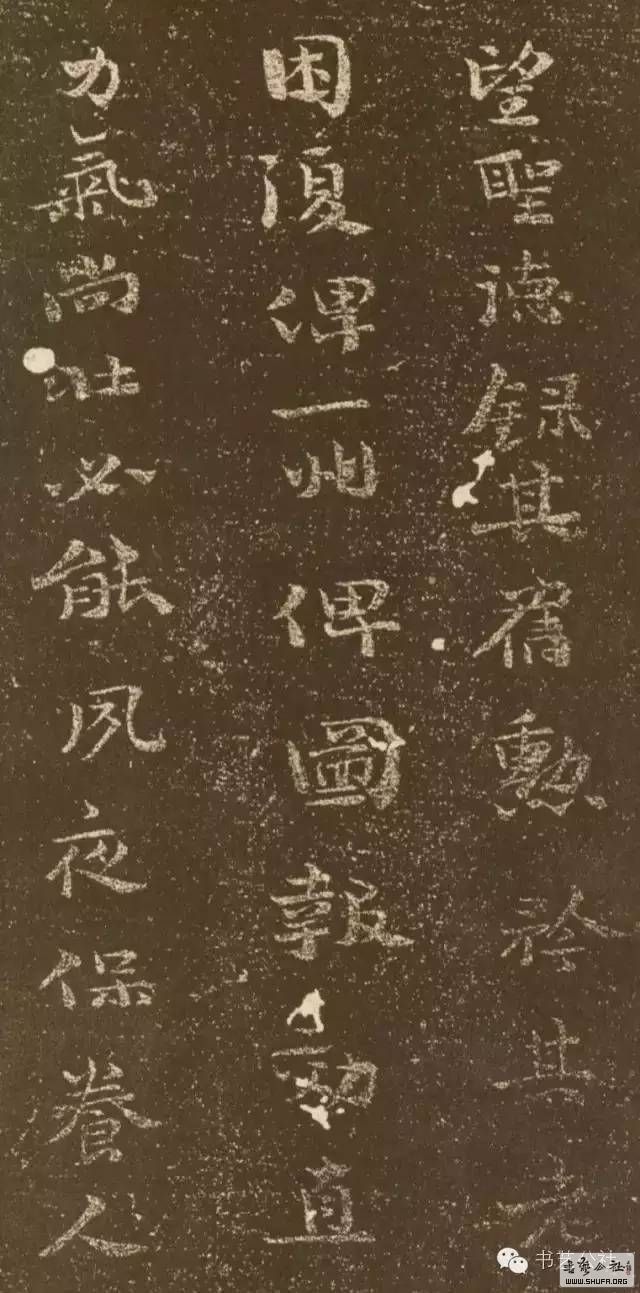 望聖德錄其舊勳矜其老
困復俾一州俾圖報効直
力氣尚壯必能夙夜保養人
书艺公社
書藝公社
WWW.SHUFA.ORG